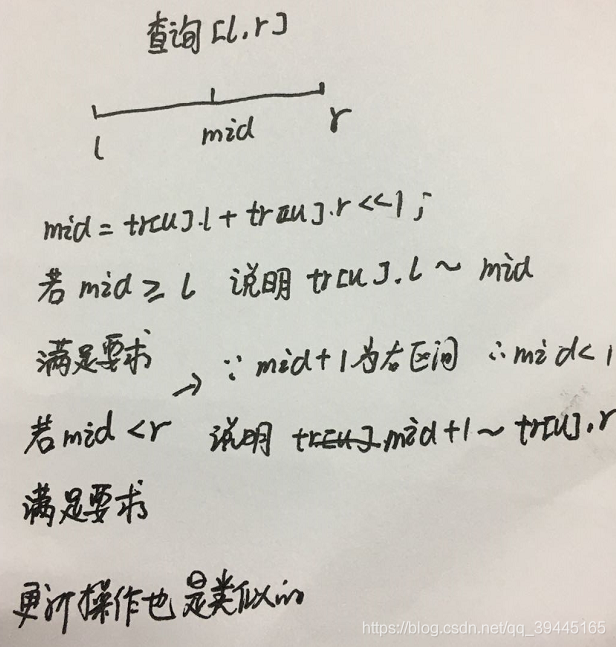 查询[l,r]
l mid r
mid = tr[u].l + tr[u].r <<1;
若 mid ≥ l 说明 tr[u].l ~ mid
满足要求 → ∵ mid+1为右区间 ∴ mid<
若 mid < r 说明 mid+1 ~ tr[u].r
满足要求
更新操作也是类似的
https://blog.csdn.net/qq_39445165